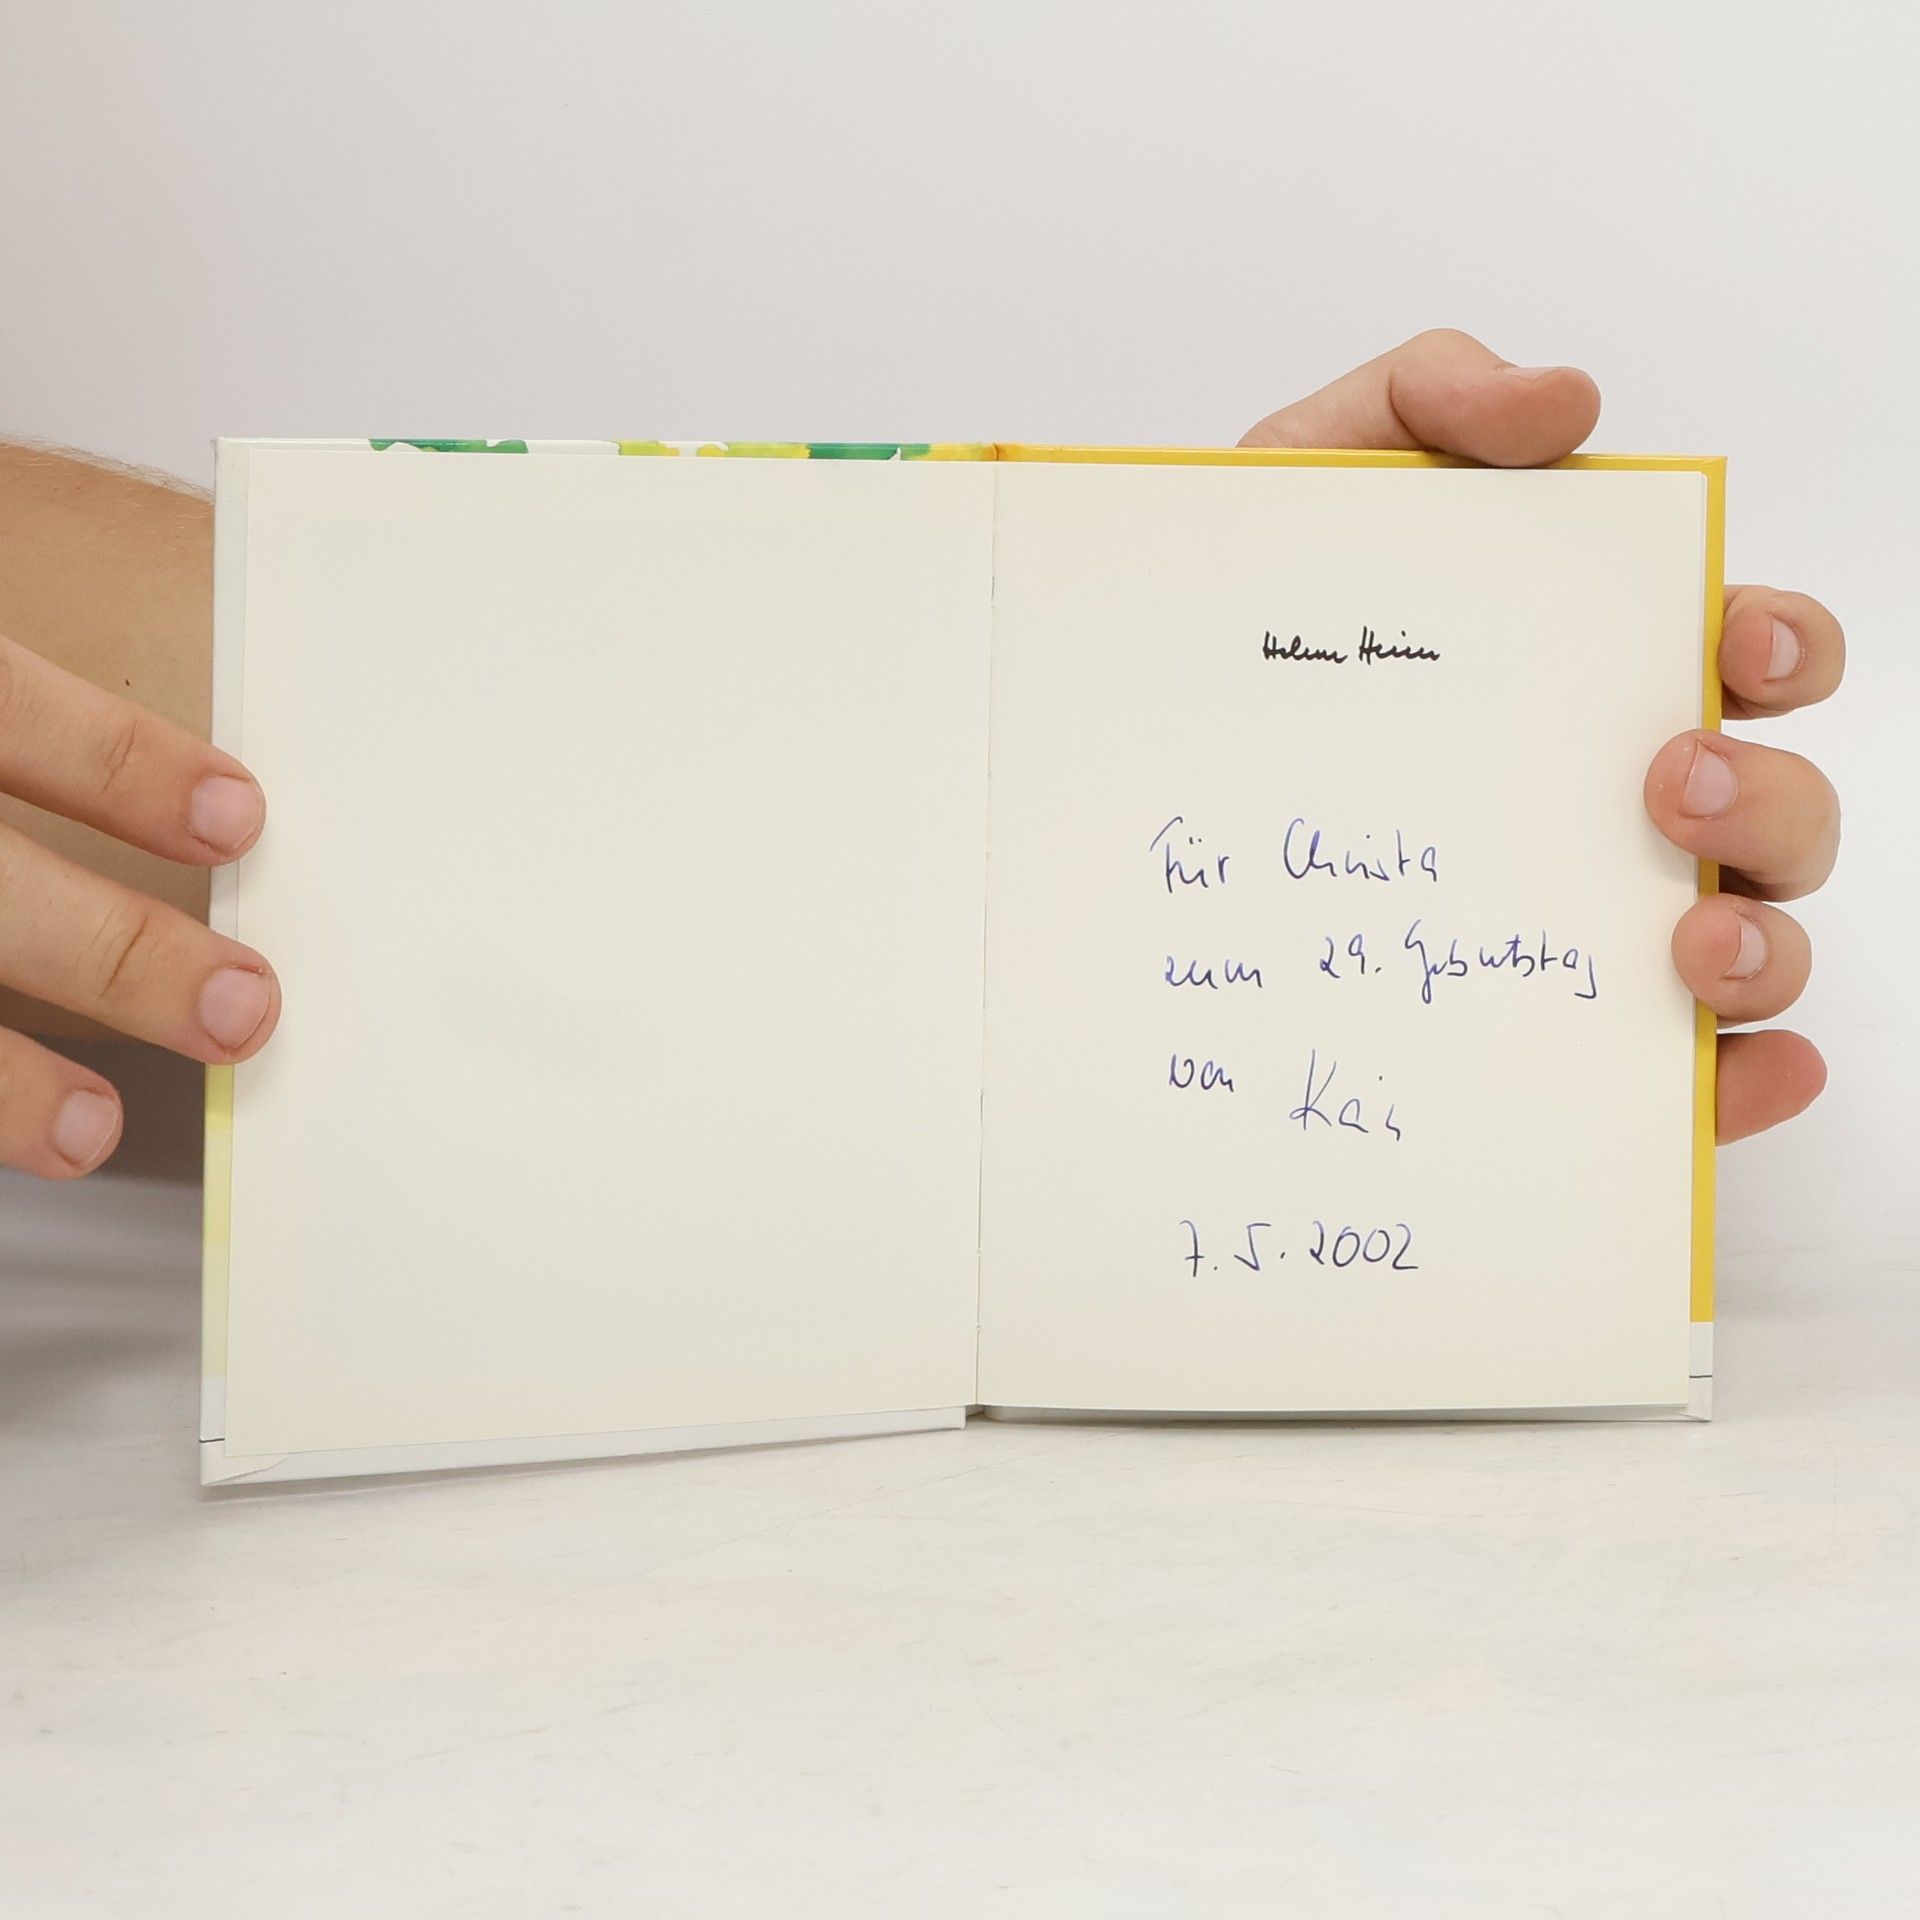 Helme Heine
Für Christa
zum 29. Geburtstag
von Kai
7.5.2002